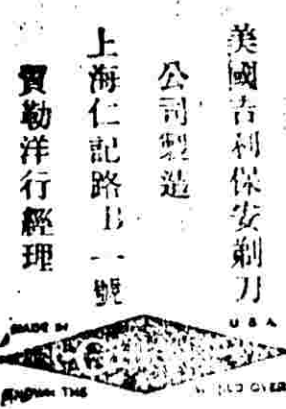 美國吉利保安剃刀
公司製造
上海仁記路B一號
賈勒洋行經理
MADE IN U S A
KNOWN THE WORLD OVER